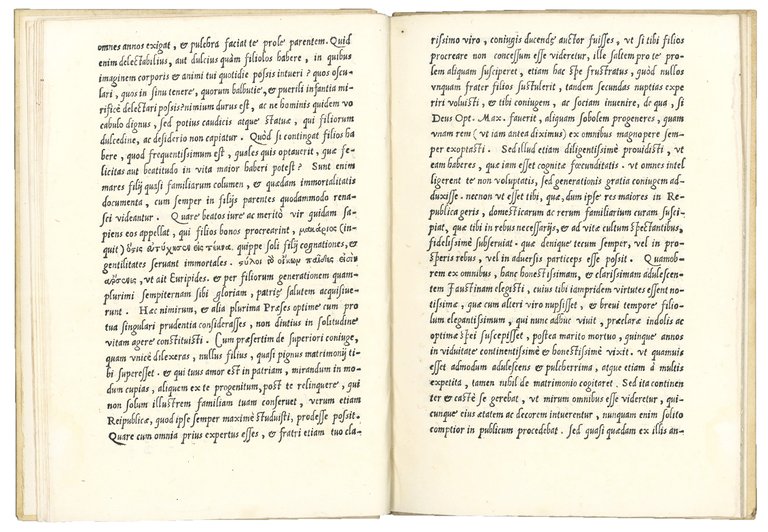 omnes annos exigat, & pulchra faciat te prole parentem. Quid
enim delectabilius, aut dulcius quàm filiolos habere, in quibus
imaginem corporis & animi tui quotidie possis intueri? quos oscu-
lari, quos in sinu tenere, quorum balbutie, & puerili infantia mi-
rificè delectari possis? nimium durus est, ac ne hominis quidem vo
cabulo dignus, sed potius caudicis atque statuæ, qui filiorum
dulcedine, ac desiderio non capiatur. Quòd si contingat filios ha
bere, quod frequentissimum est, quales quis optauerit, quæ fe-
licitas aut beatitudo in vita maior haberi potest? Sunt enim
mares filij quasi familiarum columen, & quædam immortalitatis
documenta, cum semper in filijs parentes quodammodo rena-
sci videantur. Quare beatos iure ac meritò vir quidam sa-
piens eos appellat, qui filios bonos procrearint, μακάριος (in-
quit) ὅςις εὐτύχησεν εἰς τέκνα. quippe soli filij cognationes, &
gentilitates seruant immortales. ςύλοι γὸ οἴκων παῖδές εἰσιν
ἄρσενες, vt ait Euripides. & per filiorum generationem quam-
plurimi sempiternam sibi gloriam, patriæ salutem acquisiue-
runt. Hæc nimirum, & alia plurima Præses optime cum pro
tua singulari prudentia considerasses, non diutius in solitudine
vitam agere constituisti. Cum præsertim de superiori coniuge,
quam vnicè dilexeras, nullus filius, quasi pignus matrimonij ti-
bi superesset. & qui tuus amor est in patriam, mirandum in mo-
dum cupias, aliquem ex te progenitum, post te relinquere, qui
non solum illustrem familiam tuam conseruet, verum etiam
Reipublicæ, quod ipse semper maximè studuisti, prodesse possit.
Quare cum omnia prius expertus esses, & fratri etiam tuo cla-
rissimo viro, coniugis ducendę auctor fuisses, vt si tibi filios
procreare non concessum esse videretur, ille saltem pro te pro-
lem aliquam susciperet, etiam hac spe frustratus, quòd nullos
vnquam frater filios sustulerit, tandem secundas nuptias experi
ri voluisti, & tibi coniugem, ac sociam inuenire, de qua, si
Deus Opt. Max. fauerit, aliquam sobolem progeneres, quam
vnam rem (vt iam antea diximus) ex omnibus magnopere sem-
per exoptasti. Sed illud etiam diligentissimè prouidisti, vt
eam haberes, quæ iam esset cognitæ fœcunditatis. vt omnes intel
ligerent te non voluptatis, sed generationis gratia coniugem ad-
duxisse. necnon vt esset tibi, quæ, dum ipse res maiores in Re-
publica geris, domesticarum ac rerum familiarium curam susci-
piat, quæ tibi in rebus necessarijs, & ad vitæ cultum spectantibus,
fidelissimè subseruiat. quæ denique tecum semper, vel in pro-
speris rebus, vel in aduersis particeps esse possit. Quamob-
rem ex omnibus, hanc honestissimam, & clarissimam adulescen-
tem Faustinam elegisti, cuius tibi iampridem virtutes essent no-
tissimæ, quæ cum alteri viro nupsisset, & breui tempore filio-
lum elegantissimum, qui nunc adhuc viuit, præclaræ indolis ac
optimæ spei suscepisset, postea marito mortuo, quinque annos
in viduitate continentissimè & honestissimè vixit. vt quamuis
esset admodum adulescens & pulcherrima, atque etiam à multis
expetita, tamen nihil de matrimonio cogitaret. Sed ita continen
ter & castè se gerebat, vt mirum omnibus esse videretur, qui-
cunque eius ætatem ac decorem intuerentur, nunquam enim solito
comptior in publicum procedebat. sed quasi quædam ex illis an-